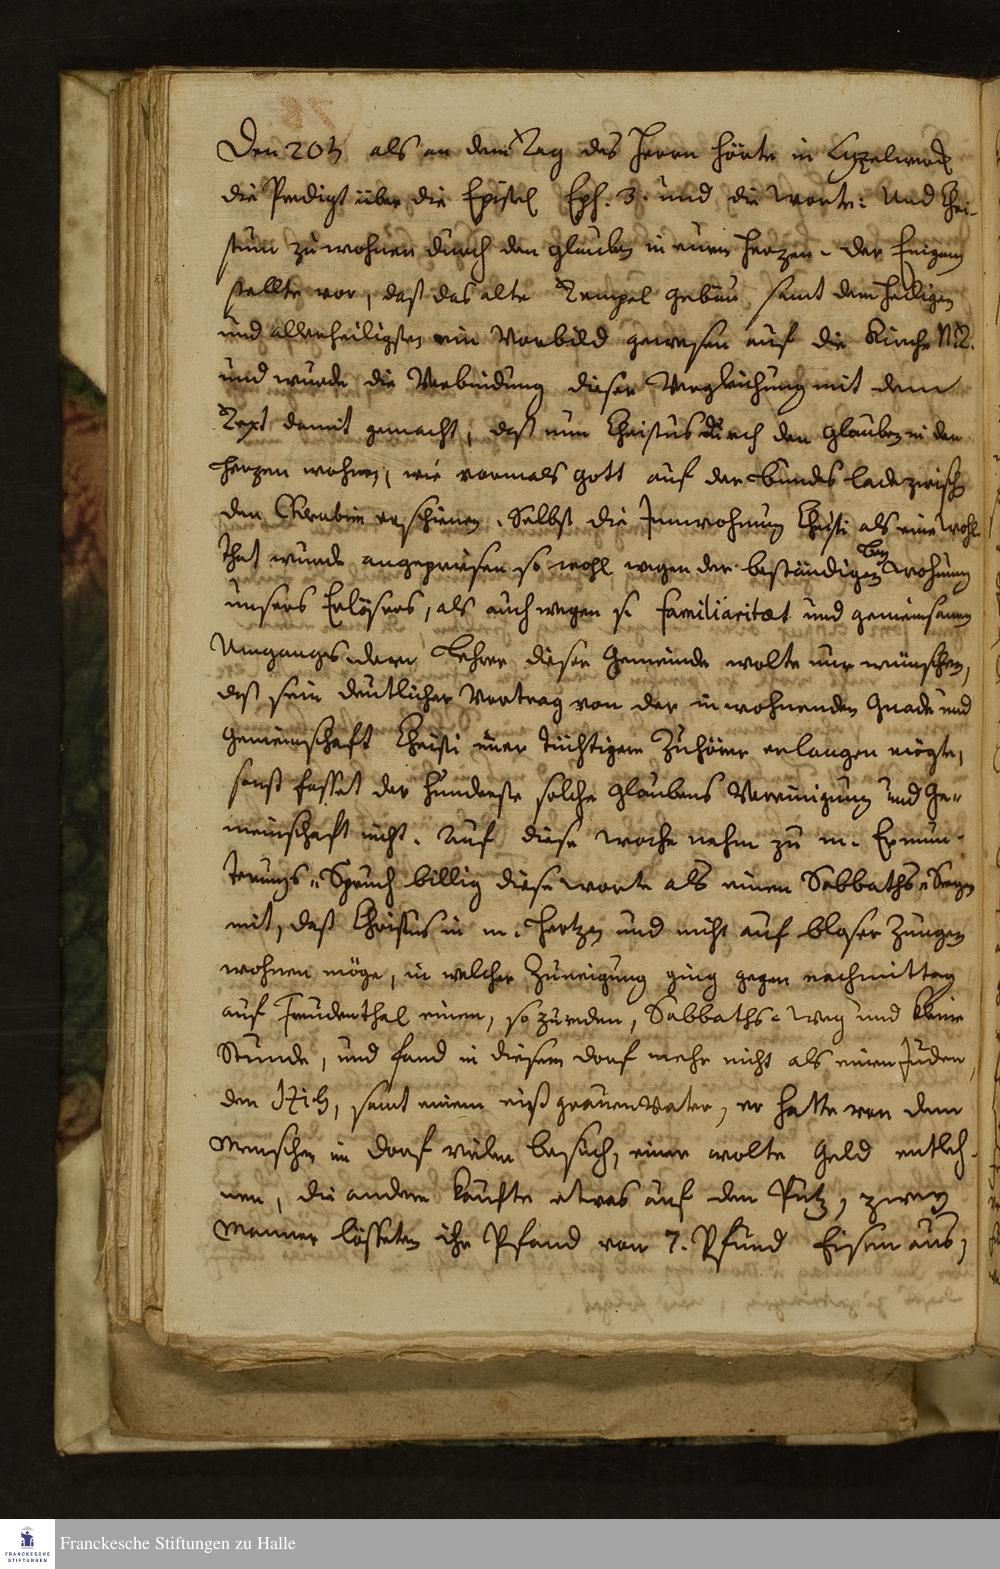 Den 20t. als an dem Tag des Herrn hörte in
die Predigt über die Epistel Eph. 3. und die Worte: Und Chri-
stum zu wohnen durch den Glauben in euren Herzen. der
stellte vor, daß das alte Tempel gebäu, samt dem Heiligen
und allerheiligsten ein Vorbild gewesen auf die Kirche N. T.
und wurde die Verbindung dieser Vergleichung mit dem
Text damit gemacht, daß nun Christus durch den Glauben in den
Herzen wohne, wie vormals Gott auf der Bundes lade zwisch
den Cherubim erschienen. Selbst die Innwohnung Christi als eine Wohl-
that wurde angepriesen so wohl wegen der beständigen Bey wohnung
unsers Erlösers, als auch wegen s. familiaritæt und gemeinsamen
Umgangs. Lehrer dieser Gemeinde wolte nur wünschen,
daß sein deutlicher Vortrag von der inwohnenden Gnade und
Gemeinschaft Christi tüchtigere Zuhörer erlangen mögte,
sonst fasset der hunderste solche Glaubens Vereinigung und Ge-
meinschaft nicht. Auf diese Woche nahm zu m. Ermun-
terungs-Spruch billig diese Worte als einen Sabbaths-Segen
mit, daß Christus in m. Hertzen und nicht auf bloser Zungen
wohnen möge, in welcher Zuneigung ging gegen nachmittag
auf Freudenthal einen, so zureden, Sabbaths-Weg und kleine
Stunde, und fand in diesem Dorf mehr nicht als einen Juden,
den Itzig, samt einem eißgrauen Vater, er hatte von den
Menschen im Dorf vielen besuch, einer wolte Geld entleh-
nen, die andere kaufte etwas auf den Putz, zwey
Männer löseten ihr Pfand von 7. Pfund Eisen aus,
Franckesche Stiftungen zu Halle
FRANCKESCHE
STIFTUNGEN